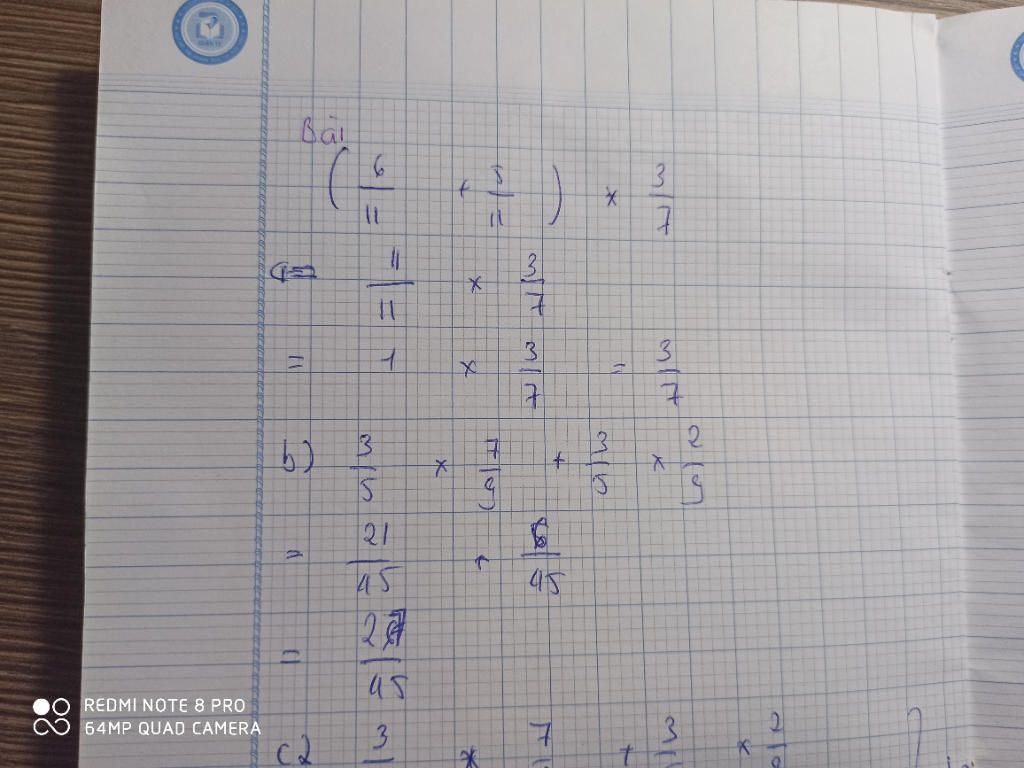 Bài
( 6/11 + 5/11 ) × 3/7
= 11/11 × 3/7
= 1 × 3/7 = 3/7
b) 3/5 × 7/9 + 3/5 × 2/9
= 21/45 + 6/45
= 27/45
C2 3 × 7 + 3 × 2
REDMI NOTE 8 PRO
64MP QUAD CAMERA